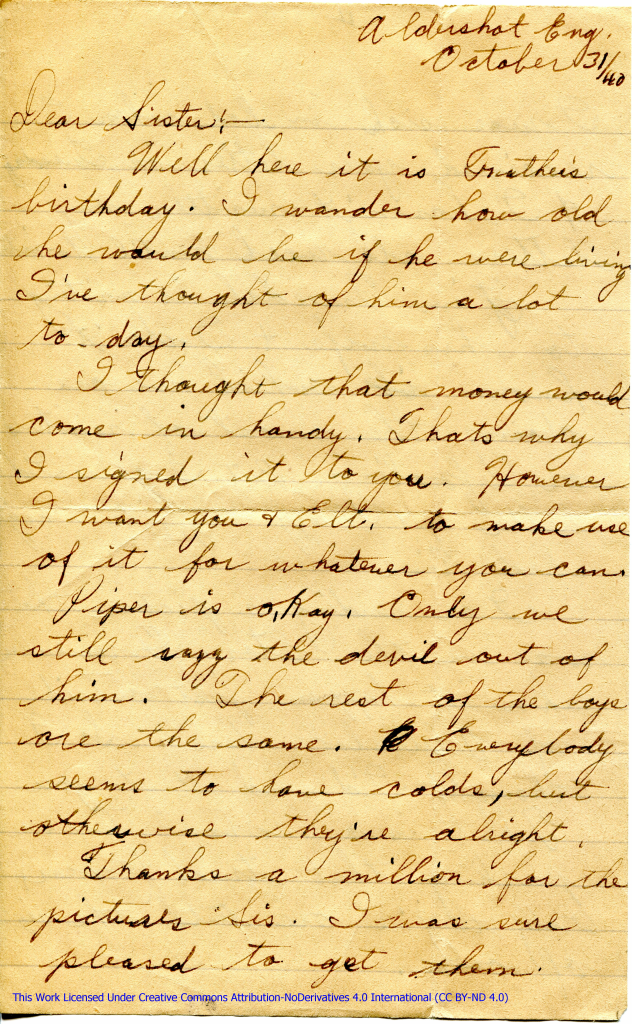 Aldershot Eng.
October 31/40
Dear Sister:—
Well here it is Frather's
birthday. I wander how old
he would be if he were living
I've thought of him a lot
to-day.
I thought that money would
come in handy. Thats why
I signed it to you. However
I want you & Elt. to make use
of it for whatever you can.
Piper is o,Kay. Only we
still the devil out of
him. The rest of the boys
are the same. Everybody
seems to have colds, but
otherwise they're alright.
Thanks a million for the
pictures Sis. I was sure
pleased to get them.
This Work Licensed Under Creative Commons Attribution-NoDerivatives 4.0 International (CC BY-ND 4.0)